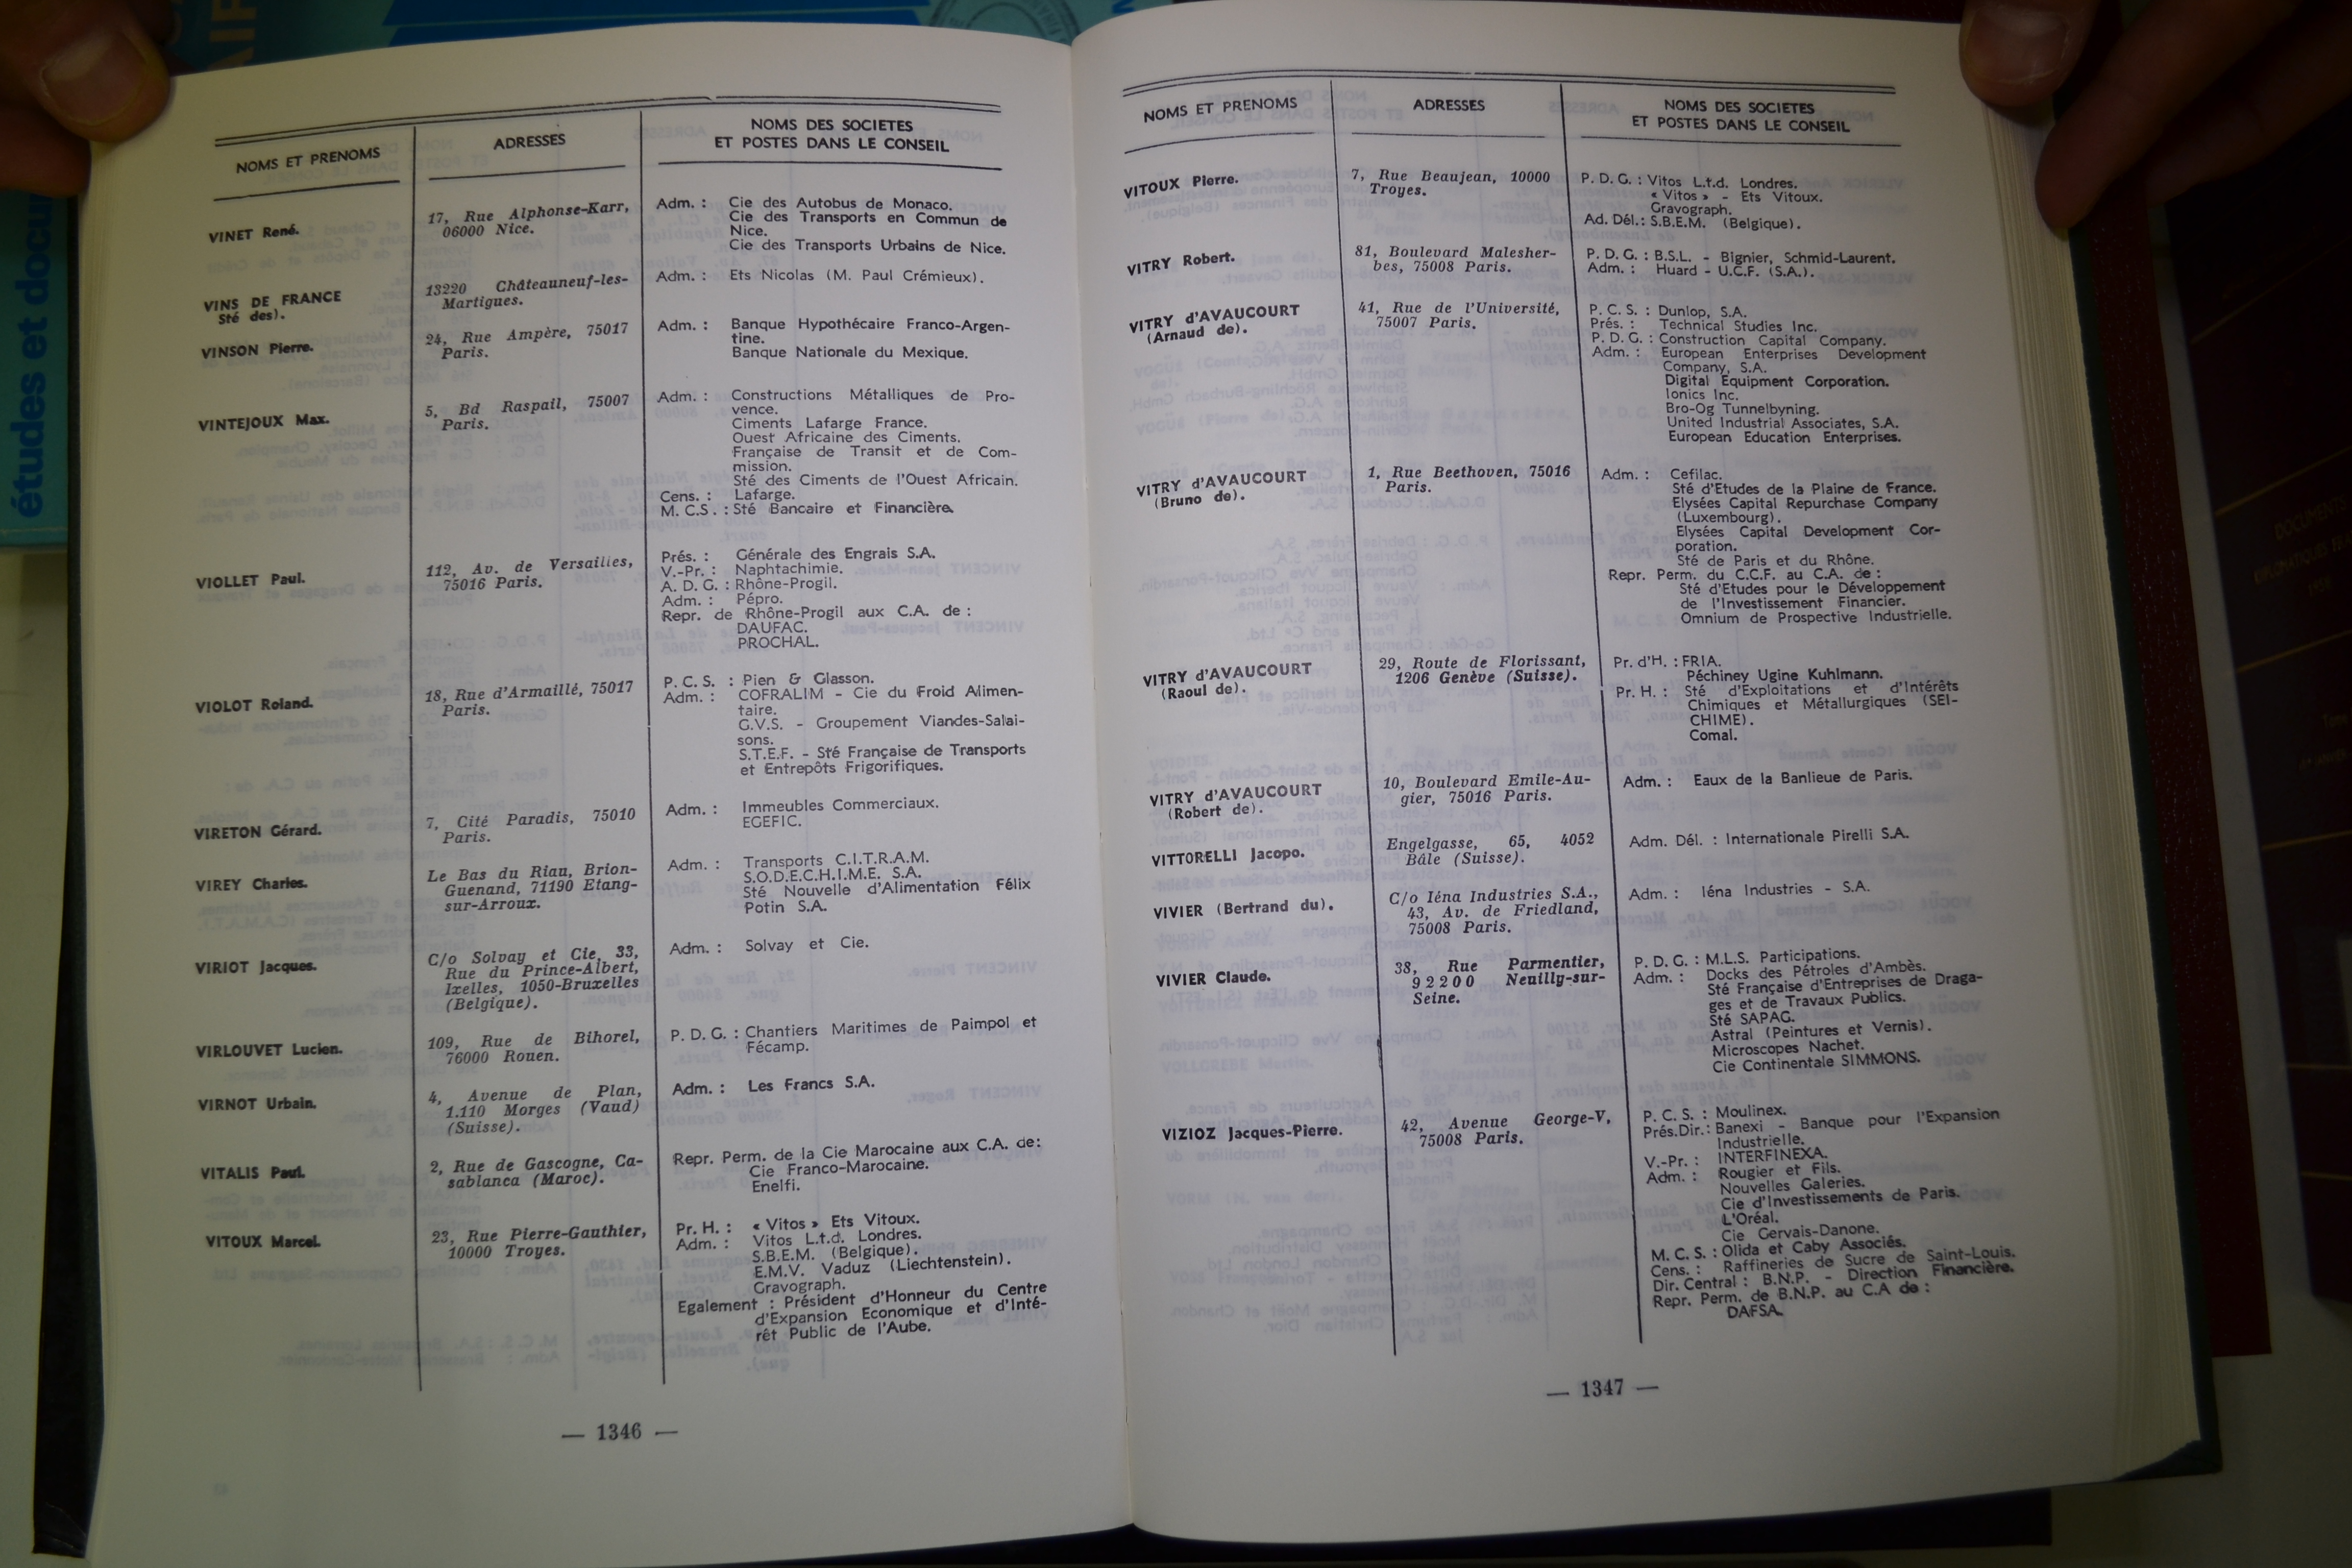 études et docu
NOMS ET PRENOMS
ADRESSES
NOMS DES SOCIETES
ET POSTES DANS LE CONSEIL
VINET René.
17, Rue Alphonse-Karr,
06000 Nice.
Adm. : Cie des Autobus de Monaco.
Cie des Transports en Commun de
Nice.
Cie des Transports Urbains de Nice.
VINS DE FRANCE
Sté des).
13220 Châteauneuf-les-
Martigues.
Adm. : Ets Nicolas (M. Paul Crémieux).
VINSON Pierre.
24, Rue Ampère, 75017
Paris.
Adm. : Banque Hypothécaire Franco-Argen-
tine.
Banque Nationale du Mexique.
VINTEJOUX Max.
5, Bd Raspail, 75007
Paris.
Adm. : Constructions Métalliques de Pro-
vence.
Ciments Lafarge France.
Ouest Africaine des Ciments.
Française de Transit et de Com-
mission.
Sté des Ciments de l'Ouest Africain.
Cens. : Lafarge.
M. C.S. : Sté Bancaire et Financière.
VIOLLET Paul.
112, Av. de Versailles,
75016 Paris.
Prés. : Générale des Engrais S.A.
V.-Pr. : Naphtachimie.
A. D. G. : Rhône-Progil.
Adm. : Pépro.
Repr. de Rhône-Progil aux C.A. de :
DAUFAC.
PROCHAL.
VIOLOT Roland.
18, Rue d'Armaillé, 75017
Paris.
P. C. S. : Pien & Glasson.
Adm. : COFRALIM - Cie du Froid Alimen-
taire.
G.V.S. - Groupement Viandes-Salai-
sons.
S.T.E.F. - Sté Française de Transports
et Entrepôts Frigorifiques.
VIRETON Gérard.
7, Cité Paradis, 75010
Paris.
Adm. : Immeubles Commerciaux.
EGEFIC.
VIREY Charles.
Le Bas du Riau, Brion-
Guenand, 71190 Etang-
sur-Arroux.
Adm. : Transports C.I.T.R.A.M.
S.O.D.E.C.H.I.M.E. S.A.
Sté Nouvelle d'Alimentation Félix
Potin S.A.
VIRIOT Jacques.
C/o Solvay et Cie, 33,
Rue du Prince-Albert,
Ixelles, 1050-Bruxelles
(Belgique).
Adm. : Solvay et Cie.
VIRLOUVET Lucien.
109, Rue de Bihorel,
76000 Rouen.
P. D. G. : Chantiers Maritimes de Paimpol et
Fécamp.
VIRNOT Urbain.
4, Avenue de Plan,
1.110 Morges (Vaud)
(Suisse).
Adm. : Les Francs S.A.
VITALIS Paul.
2, Rue de Gascogne, Ca-
sablanca (Maroc).
Repr. Perm. de la Cie Marocaine aux C.A. de:
Cie Franco-Marocaine.
Enelfi.
VITOUX Marcel.
23, Rue Pierre-Gauthier,
10000 Troyes.
Pr. H. : « Vitos » Ets Vitoux.
Adm. : Vitos L.t.d. Londres.
S.B.E.M. (Belgique).
E.M.V. Vaduz (Liechtenstein).
Gravograph.
Egalement : Président d'Honneur du Centre
d'Expansion Economique et d'Inté-
rêt Public de l'Aube.
— 1346 —
NOMS ET PRENOMS
ADRESSES
NOMS DES SOCIETES
ET POSTES DANS LE CONSEIL
VITOUX Pierre.
7, Rue Beaujean, 10000
Troyes.
P. D. G. : Vitos L.t.d. Londres.
« Vitos » - Ets Vitoux.
Gravograph.
Ad. Dél.: S.B.E.M. (Belgique).
VITRY Robert.
81, Boulevard Malesher-
bes, 75008 Paris.
P. D. G. : B.S.L. - Bignier, Schmid-Laurent.
Adm. : Huard - U.C.F. (S.A.).
VITRY d'AVAUCOURT
(Arnaud de).
41, Rue de l'Université,
75007 Paris.
P. C. S. : Dunlop, S.A.
Prés. : Technical Studies Inc.
P. D. G. : Construction Capital Company.
Adm. : European Enterprises Development
Company, S.A.
Digital Equipment Corporation.
Ionics Inc.
Bro-Og Tunnelbyning.
United Industrial Associates, S.A.
European Education Enterprises.
VITRY d'AVAUCOURT
(Bruno de).
1, Rue Beethoven, 75016
Paris.
Adm. : Cefilac.
Sté d'Etudes de la Plaine de France.
Elysées Capital Repurchase Company
(Luxembourg).
Elysées Capital Development Cor-
poration.
Sté de Paris et du Rhône.
Repr. Perm. du C.C.F. au C.A. de :
Sté d'Etudes pour le Développement
de l'Investissement Financier.
Omnium de Prospective Industrielle.
VITRY d'AVAUCOURT
(Raoul de).
29, Route de Florissant,
1206 Genève (Suisse).
Pr. d'H. : FRIA.
Péchiney Ugine Kuhlmann.
Pr. H. : Sté d'Exploitations et d'Intérêts
Chimiques et Métallurgiques (SEI-
CHIME).
Comal.
VITRY d'AVAUCOURT
(Robert de).
10, Boulevard Emile-Au-
gier, 75016 Paris.
Adm. : Eaux de la Banlieue de Paris.
VITTORELLI Jacopo.
Engelgasse, 65, 4052
Bâle (Suisse).
Adm. Dél. : Internationale Pirelli S.A.
VIVIER (Bertrand du).
C/o Iéna Industries S.A.,
43, Av. de Friedland,
75008 Paris.
Adm. : Iéna Industries - S.A.
VIVIER Claude.
38, Rue Parmentier,
92200 Neuilly-sur-
Seine.
P. D. G. : M.L.S. Participations.
Adm. : Docks des Pétroles d'Ambès.
Sté Française d'Entreprises de Draga-
ges et de Travaux Publics.
Sté SAPAG.
Astral (Peintures et Vernis).
Microscopes Nachet.
Cie Continentale SIMMONS.
VIZIOZ Jacques-Pierre.
42, Avenue George-V,
75008 Paris.
P. C. S. : Moulinex.
Prés.Dir.: Banexi - Banque pour l'Expansion
Industrielle.
V.-Pr. : INTERFINEXA.
Adm. : Rougier et Fils.
Nouvelles Galeries.
Cie d'Investissements de Paris.
L'Oréal.
Cie Gervais-Danone.
M. C. S. : Olida et Caby Associés.
Cens. : Raffineries de Sucre de Saint-Louis.
Dir. Central : B.N.P. - Direction Financière.
Repr. Perm. de B.N.P. au C.A de :
DAFSA.
— 1347 —